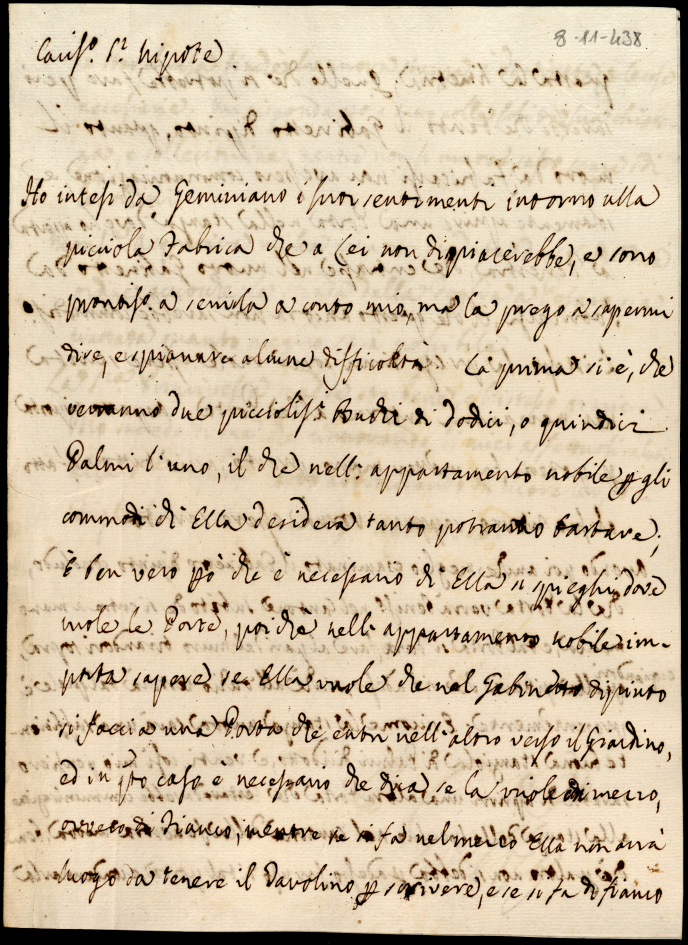 8-11-438
Caris.o S.r Nipote
Ho intesi da Geminiano i suoi sentimenti intorno alla
picciola Fabrica che a Lei non dispiacerebbe, e sono
prontis.o a servirla a conto mio, ma la prego a sapermi
dire, e spianare alcune difficoltà. La prima si è, che
verranno due picciolis.i Buchi di dodici, o quindici
Palmi l'uno, il che nell'appartamento nobile p gli
commodi ch'Ella desidera tanto potranno bastare;
È ben vero pò che è necessario ch'Ella si spieghi dove
vuole le Porte, poiche nell'appartamento nobile im-
porta sapere se Ella vuole che nel Gabinetto dipinto
si faccia una Porta che entri nell'altro verso il Giardino,
ed in q̃to caso è necessario che dica se la vuole di mezzo,
ovvero di Fianco, mentre se si fa nel mezzo Ella non avrà
luogo da tenere il Tavolino p scrivere, e se si fa di fianco